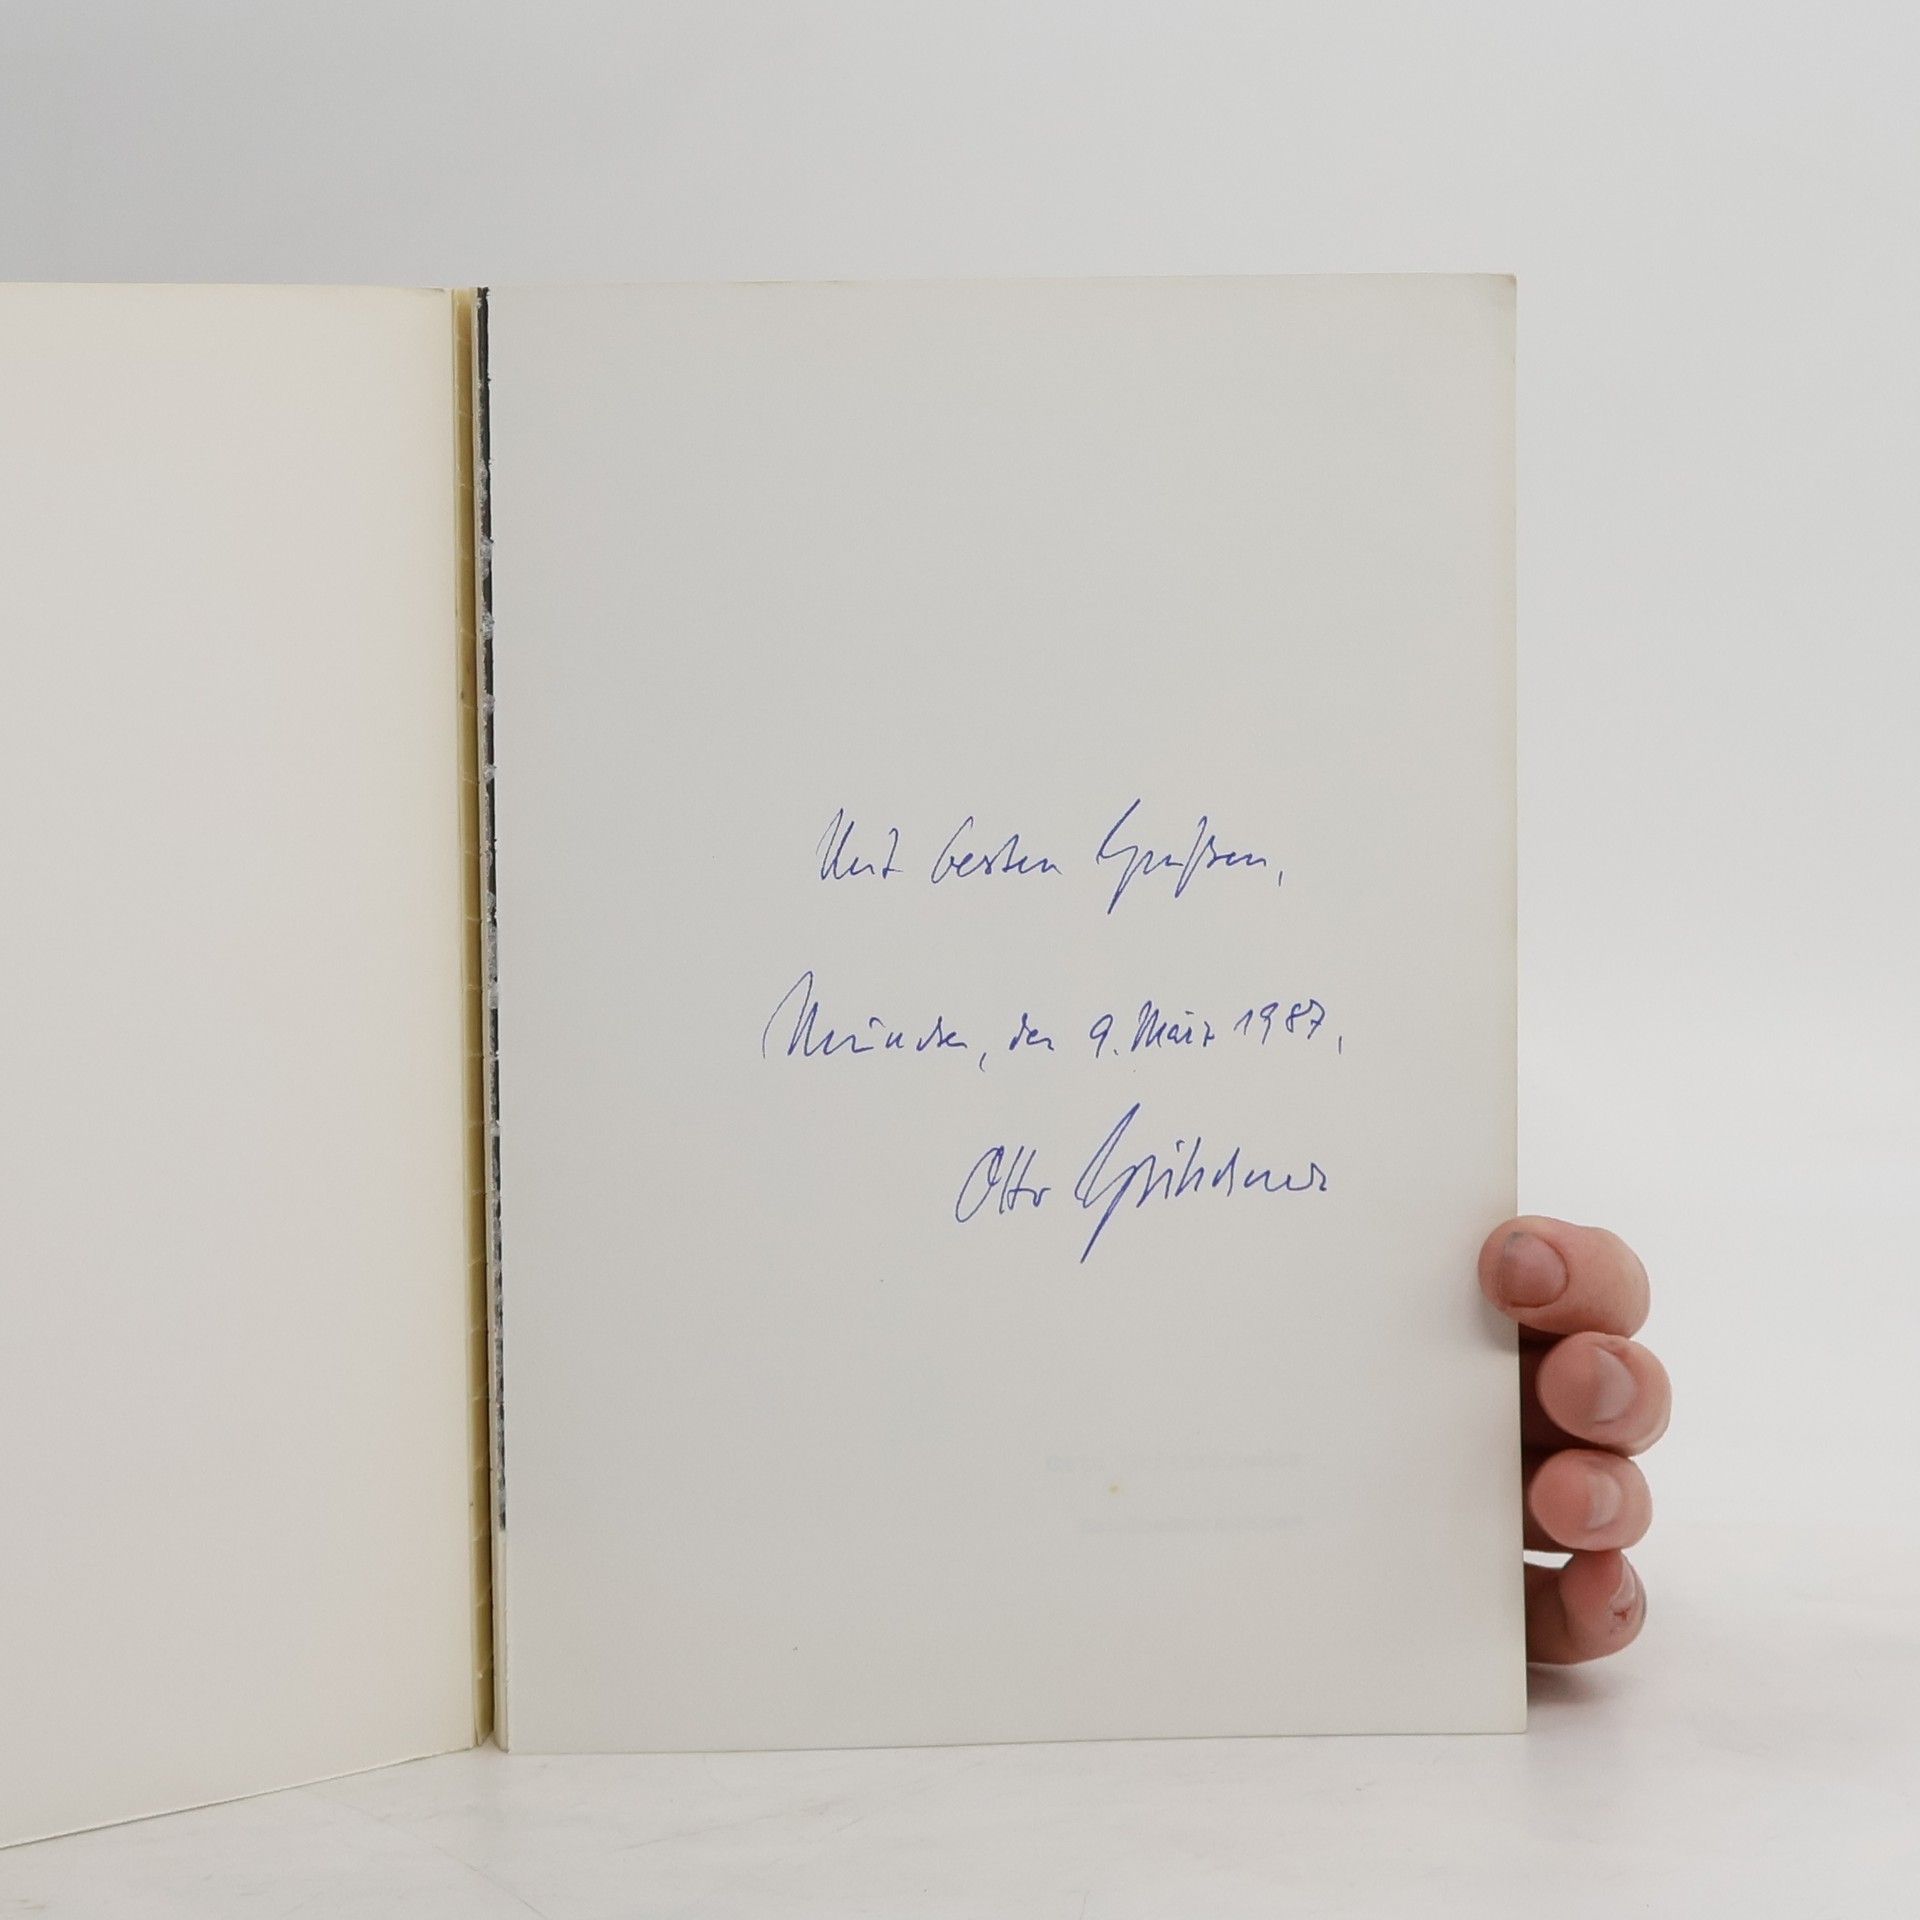 Mit besten Grüßen,
München, den 9. März 1987,
Otto